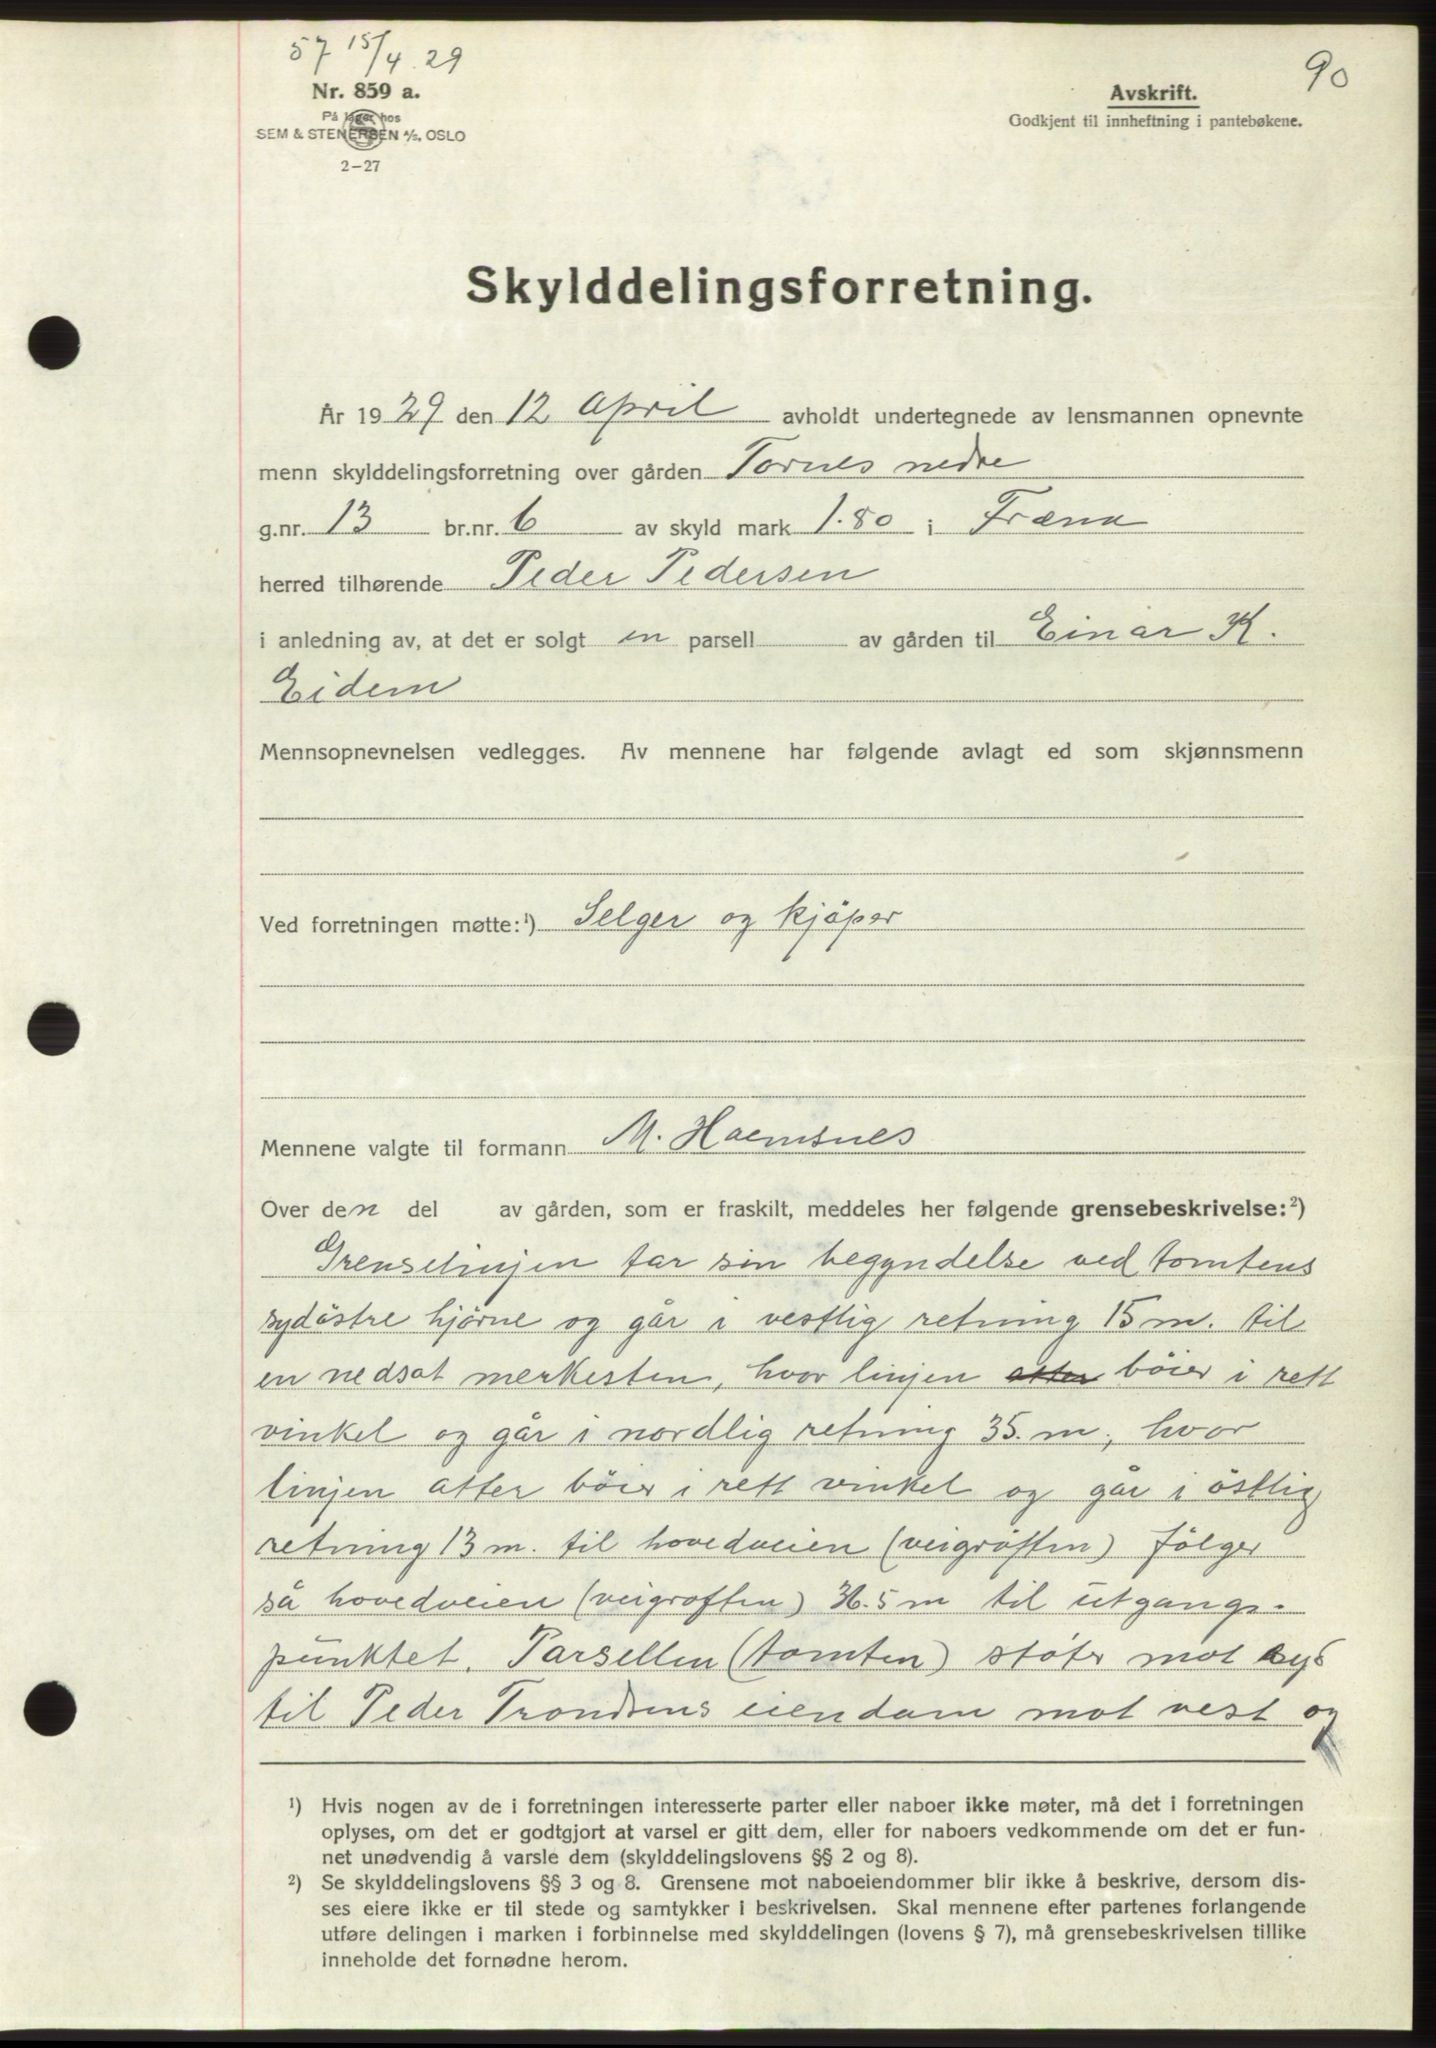 57 15/4 29
90
Nr. 859 a.
På lager hos
SEM & STENERSEN A/S, OSLO
2—27
Avskrift.
Godkjent til innheftning i pantebøkene.
Skylddelingsforretning.
År 1929 den 12 April avholdt undertegnede av lensmannen opnevnte
menn skylddelingsforretning over gården Tornes nedre
g.nr. 13 br.nr. 6 av skyld mark 1.80 i Fræna
herred tilhørende Peder Pedersen
i anledning av, at det er solgt en parsell av gården til Einar K.
Eidem
Mennsopnevnelsen vedlegges. Av mennene har følgende avlagt ed som skjønnsmenn
Ved forretningen møtte:¹) Selger og kjöper
Mennene valgte til formann M. Haemsnes
Over den del av gården, som er fraskilt, meddeles her følgende grensebeskrivelse:²)
Grenselinjen tar sin begyndelse ved tomtens
sydöstre hjörne og går i vestlig retning 15 m. til
en nedsat merkesten, hvor linjen atter böier i rett
vinkel og går i nordlig retning 35. m., hvor
linjen atter böier i rett vinkel og går i östlig
retning 13 m. til hovedveien (veigröften) fölger
så hovedveien (veigroften) 36.5 m til utgangs-
punktet. Parsellen (tomten) stöter mot syd
til Peder Trondsens eiendom mot vest og
¹) Hvis nogen av de i forretningen interesserte parter eller naboer ikke møter, må det i forretningen
oplyses, om det er godtgjort at varsel er gitt dem, eller for naboers vedkommende om det er fun-
net unødvendig å varsle dem (skylddelingslovens §§ 2 og 8).
²) Se skylddelingslovens §§ 3 og 8. Grensene mot naboeiendommer blir ikke å beskrive, dersom dis-
ses eiere ikke er til stede og samtykker i beskrivelsen. Skal mennene efter partenes forlangende
utføre delingen i marken i forbinnelse med skylddelingen (lovens § 7), må grensebeskrivelsen tillike
inneholde det fornødne herom.